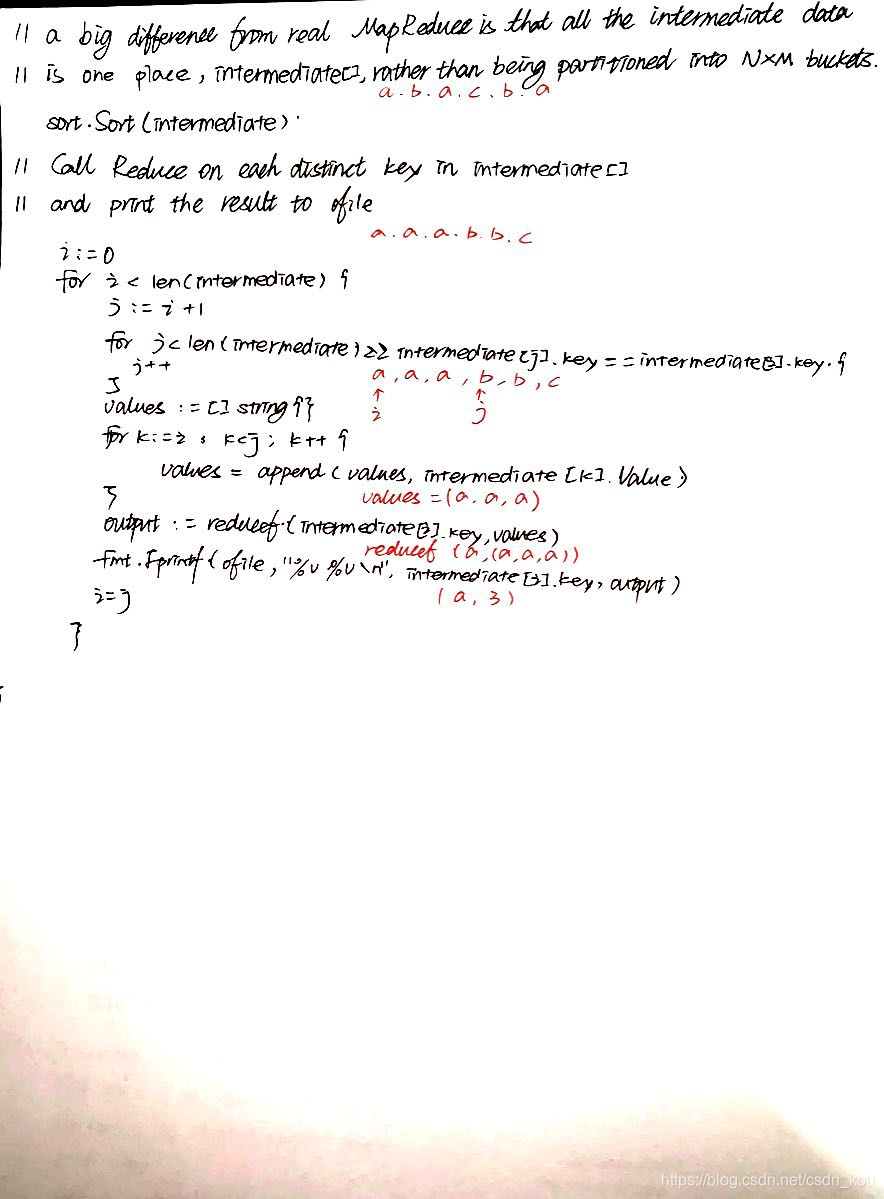 // a big difference from real MapReduce is that all the intermediate data
// is one place, intermediate[], rather than being partitioned into N×M buckets.
a.b.a.c.b.a
sort.Sort(intermediate)
// Call Reduce on each distinct key in intermediate[]
// and print the result to ofile
a.a.a.b.b.c
i:=0
for i < len(intermediate) {
j := i+1
for j< len(intermediate) && intermediate[j].key == intermediate[i].key. {
j++
}
a, a, a, b, b, c
↑ ↑
i j
values := []string{}
for k:=i; k<j; k++ {
values = append(values, intermediate[k].Value)
}
values =(a.a,a)
output := reducef(intermediate[i].key,values)
reducef (a,(a,a,a))
fmt.Fprintf(ofile,"%v %v\n", intermediate[i].key, output)
i=j
(a, 3)
}
https://blog.csdn.net/csdn_kou